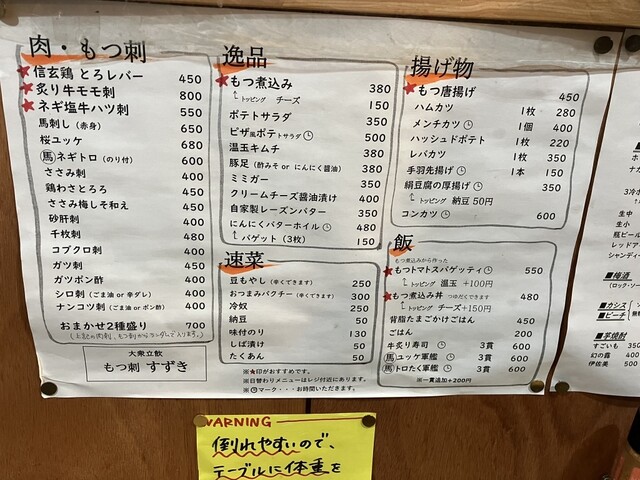 肉・もつ刺
★信玄鶏 とろレバー 450
★炙り牛モモ刺 800
★ネギ塩牛ハツ刺 550
馬刺し(赤身) 650
桜ユッケ 680
馬ネギトロ(のり付) 600
ささみ刺 400
鶏わさとろろ 450
ささみ梅しそ和え 450
砂肝刺 400
千枚刺 480
コブクロ刺 400
ガツ刺 450
ガツポン酢 400
シロ刺(ごま油 or 辛ダレ) 400
ナンコツ刺(ごま油 or ポン酢) 400
おまかせ2種盛り 700
大衆立飲
もつ刺 すずき
逸品
★もつ煮込み 380
トッピング チーズ 150
ポテトサラダ 350
ピザ風ポテトサラダ 500
温玉キムチ 380
豚足(酢みそ or にんにく醤油) 380
ミミガー 350
クリームチーズ醤油漬け 400
自家製レーズンバター 350
にんにくバターホイル 480
バゲット(3枚) 150
速菜
豆もやし(辛くできます) 250
おつまみパクチー(辛くできます) 300
冷奴 250
納豆 50
味付のり 130
しば漬け 250
たくあん 50
※★印がおすすめです。
※日替わりメニューはレジ付近にあります。
※マーク・・・お時間いただきます。
揚げ物
★もつ唐揚げ 450
ハムカツ 1枚 280
メンチカツ 1個 400
ハッシュドポテト 1枚 220
レバカツ 1枚 350
手羽先揚げ 1本 150
絹豆腐の厚揚げ 350
トッピング 納豆 50円
コンカツ 600
飯
もつ煮込みから作った
★もつトマトスパゲッティ 550
トッピング 温玉 +100円
★もつ煮込み丼 つゆだくできます 480
トッピング チーズ+150円
背脂たまごかけごはん 450
ごはん 200
牛炙り寿司 3貫 600
馬ユッケ軍艦 3貫 600
馬トロたく軍艦 3貫 600
※一貫追加+200円
生中
生小
瓶ビール
レッドア
シャンディ
■梅酒
(ロック・ソー
■カシス
■ピーチ
■芋焼酎
すごいも 350
幻の露 400
伊佐美 500
WARNING
倒れやすいので、
テーブルに体重を